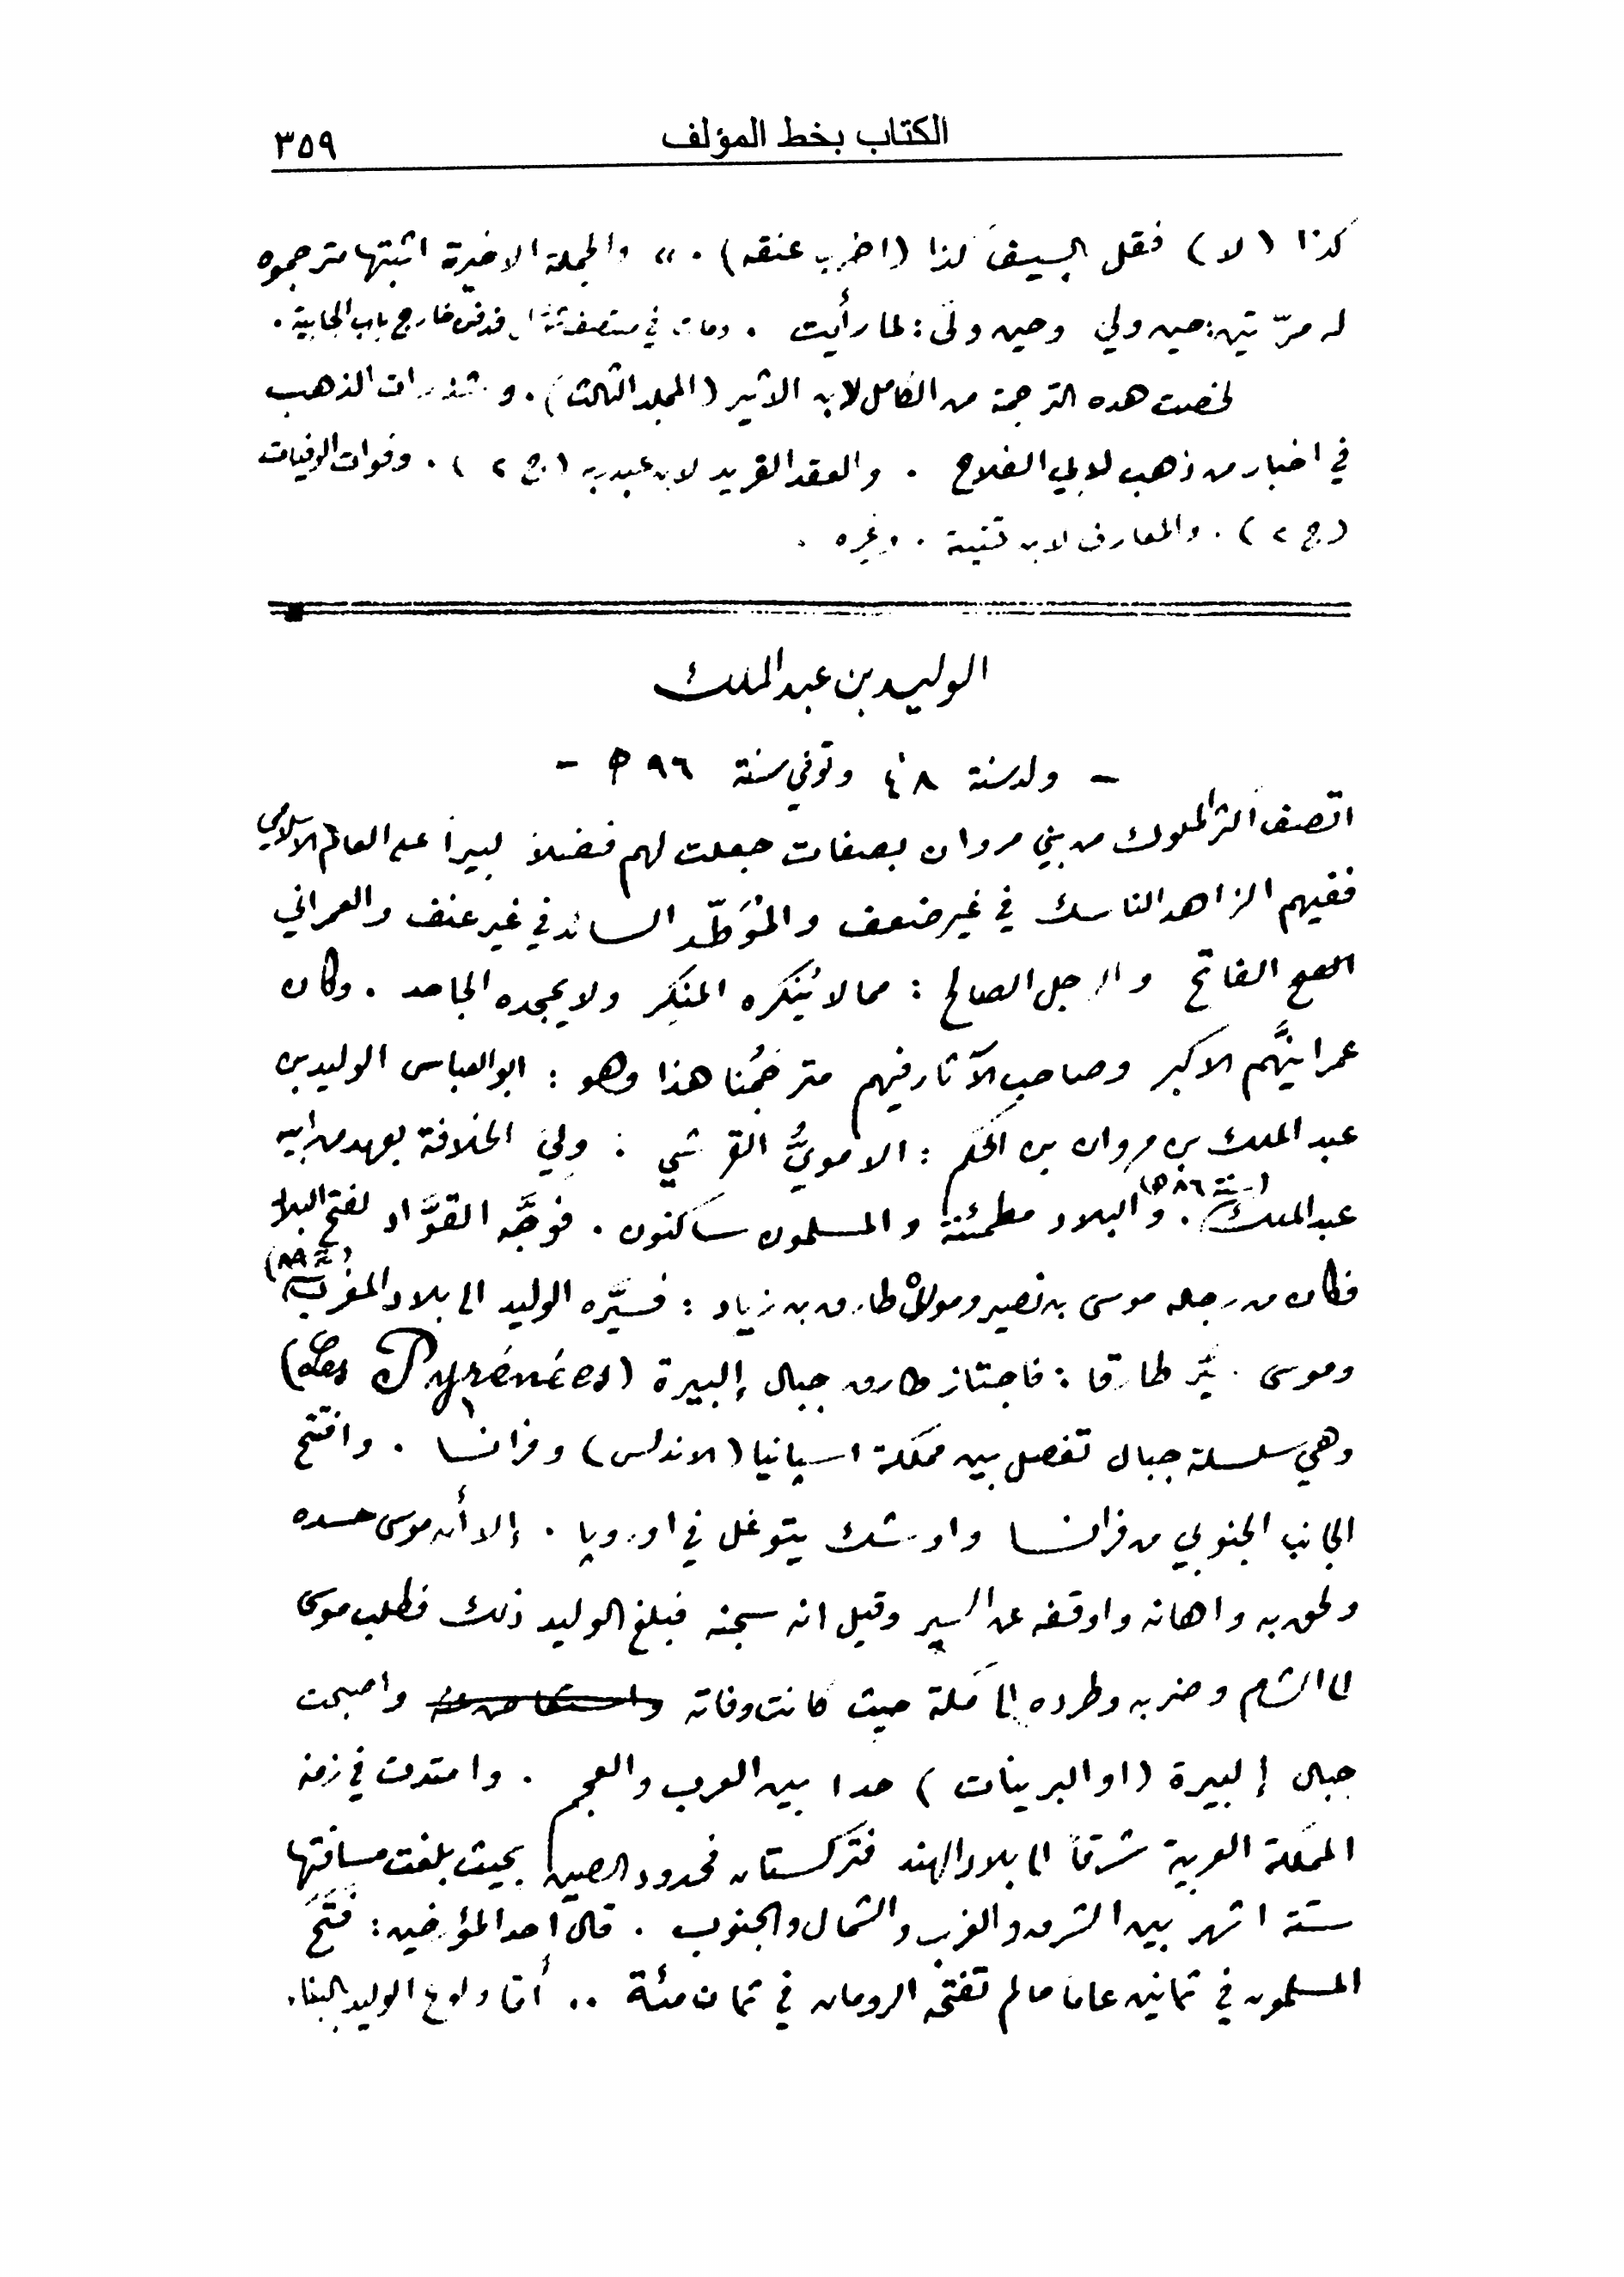 الكتاب بخط المؤلف ٣٥٩
كذا (لا) فقل بالسيف كذا (اضرب عنقه) . » والجملة الاخيرة اثبتها مترجموه
له مرّتين: حين ولي وحين ولّى: كما رأيت . ومات في منتصف فدفن خارج باب الجابية .
لخصت هذه الترجمة من الكامل لابن الاثير (المجلد الثالث) . وشذرات الذهب
في اخبار من ذهب لابي الفلاح . والعقد الفريد لابن عبد ربه (ج ٢) . وفوات الوفيات
(ج ٢) . والمعارف لابن قتيبة . وغيره .
الوليد بن عبد الملك
– ولد سنة ٤٨ وتوفي سنة ٩٦ ه –
اتصف اكثر الملوك من بني مروان بصفات جعلت لهم فضلاً كبيراً على العالم الاسلامي
ففيهم الزاهد الناسك في غير ضعف والمُوَطِّد السائد في غير عنف والعمراني
الفاتح والرجل الصالح : مما لا يُنكره المنكِر ولا يجحده الجاحد . وكان
عمرانيَّهم الاكبر وصاحب الآثار فيهم مترجَمُنا هذا وهو : ابو العباس الوليد بن
عبد الملك بن مروان بن الحكم : الامويُّ القرشي : ولي الخلافة بعهد من ابيه
عبد الملك (سنة ٨٦ ه) . والبلاد مطمئنة والمسلمون ساكنون . فوجَّه القوَّاد لفتح البلاد
فكان من رجاله موسى بن نصير ومولاه طارق بن زياد : فسيَّره الوليد الى بلاد المغرب (سنة ٨٩)
وموسى سيَّر طارقا : فاجتاز طارق جبال إلبيرة (Les Pyrénées)
وهي سلسلة جبال تفصل بين مملكة اسپانيا (الاندلس) وفرانسا . وافتتح
الجانب الجنوبي من فرانسا واوشك يتوغل في اوروپا . إلا أن موسى حسده
ولحق به واهانه واوقفه عن السير وقيل انه سجنه فبلغ الوليد ذلك فطلب موسى
الى الشام وضربه وطرده الى مكة حيث كانت وفاته واصبحت
جبال إلبيرة (او البرينات) حدا بين العرب والعجم . وامتدت في زمنه
المملكة العربية شرقاً الى بلاد الهند فتركستان فحدود الصين بحيث بلغت مسافتها
ستة اشهر بين الشرق والغرب والشمال والجنوب . قال احد المؤرخين : فَتَحَ
المسلمون في ثمانين عاما ما لم تفتحه الرومان في ثمان مئة .. أما ولوع الوليد بالبناء